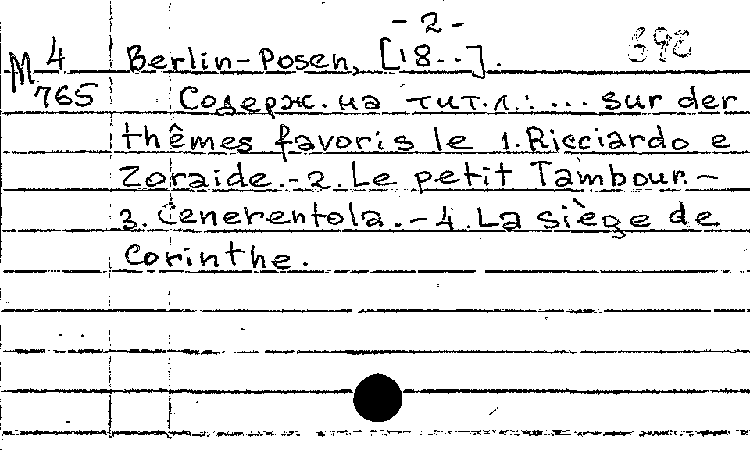 - 2 -
М 4 Berlin-Posen, [18..].
765 Содерж. на тит.л.: ... sur der
thêmes favoris le 1. Ricciardo e
Zoraide.-2. Le petit Tambour.-
3. Cenerentola.-4. La siège de
Corinthe.